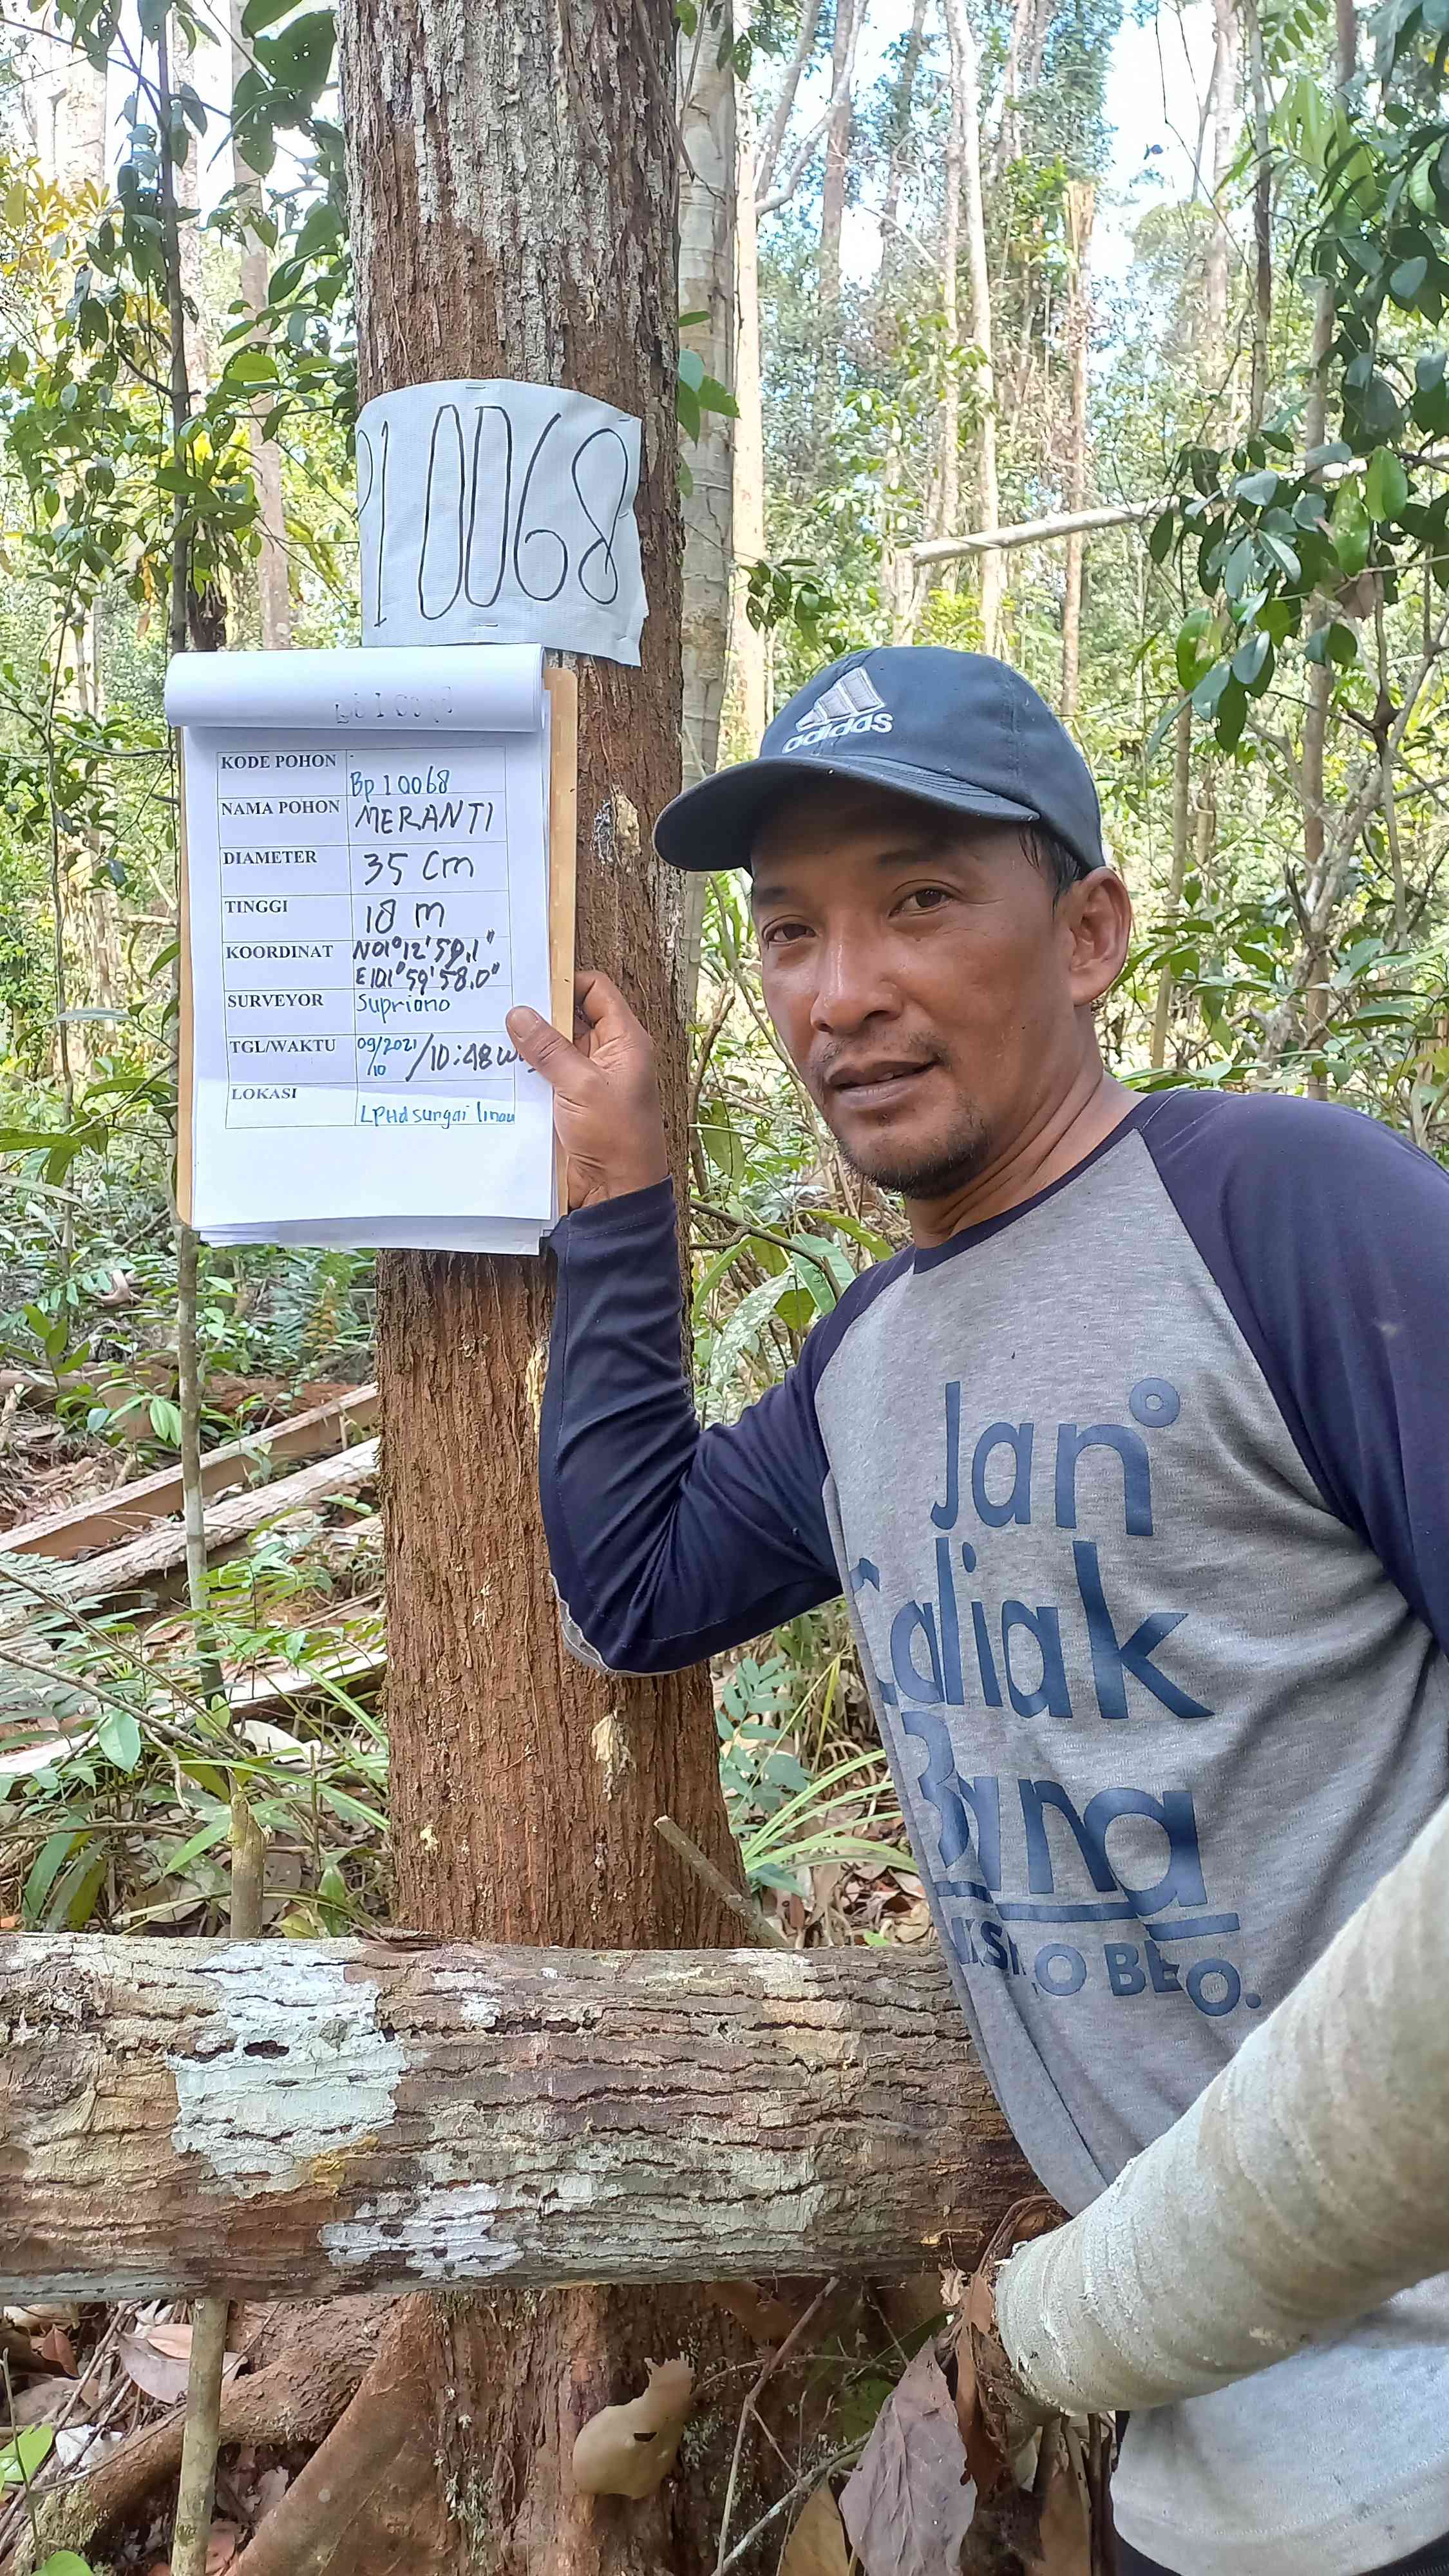 P10068
KODE POHON
Bp10068
NAMA POHON MERANTI
DIAMETER 35 cm
TINGGI 18 m
KOORDINAT N01°12'59.1"
E101°59'58.0"
SURVEYOR Supriono
TGL/WAKTU 09/2021/10:48
/10
LOKASI
LPHd sungai linau
adidas
Jan°
Kaliak
Bana
BEO.